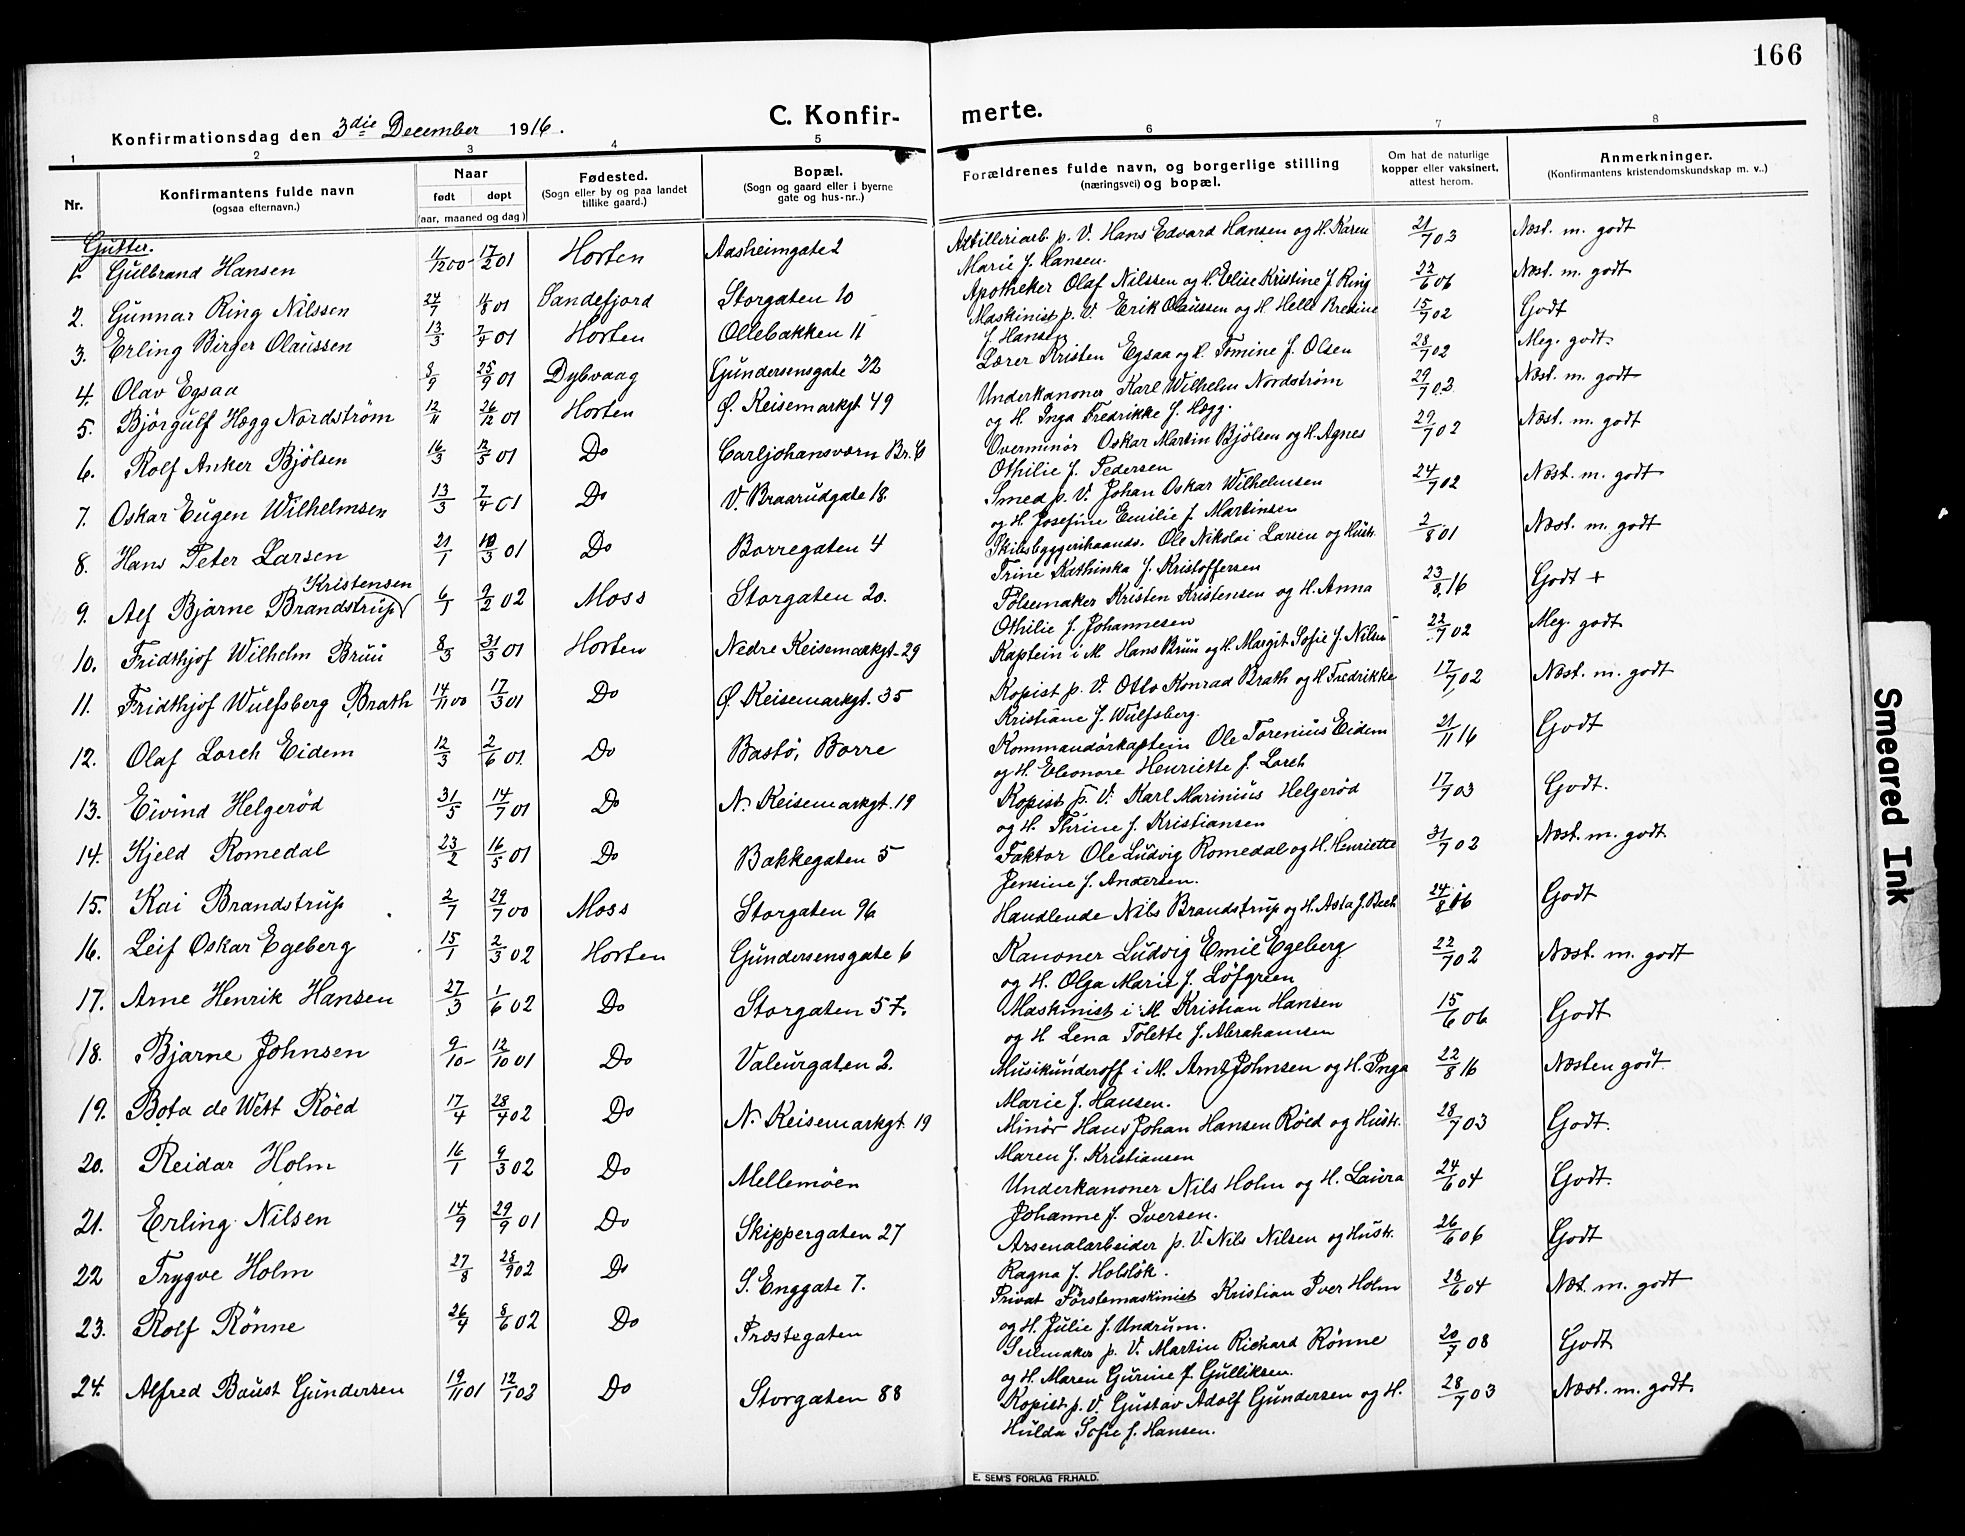 166
Konfirmationsdag den 3die December 1916.
C. Konfirmerte.
1 2 3 4 5 6 7 8
Nr.
Konfirmantens fulde navn
(ogsaa efternavn.)
Naar
født døpt
(aar, maaned og dag)
Fødested.
(Sogn eller by og paa landet
tillike gaard.)
Bopæl.
(Sogn og gaard eller i byerne
gate og hus-nr..)
Forældrenes fulde navn, og borgerlige stilling
(næringsvei) og bopæl.
Om hat de naturlige
kopper eller vaksinert,
attest herom.
Anmerkninger.
(Konfirmantens kristendomskundskap m. v..)
Gutter.
1. Gulbrand Hansen 4/12 00 - 17/2 01 Horten Aasheimgate 2 Artilleriarb. p. V. Hans Edvard Hansen og H. Karen 21/7 03 Næst. m. godt
Marie f. Hansen.
2. Gunnar Ring Nilssen 24/7 4/8 01 Sandefjord Storgaten 10 Apotheker Olaf Nilssen og H. Elise Kristine f. Ring 22/6 06 Næst. m. godt
3. Erling Birger Olaussen 13/3 7/4 01 Horten Ollebakken 11 Maskinist p. V. Erik Olaussen og H. Helle Bredine 15/7 02 Godt
f. Hansen
4. Olav Egsaa 8/9 25/9 01 Dybvaag Gundersensgate 22 Lærer Kristen Egsaa og H. Tomine f. Olsen 28/7 02 Meg. godt
5. Bjørgulf Hægg Nordstrøm 12/11 26/12 01 Horten Ø. Keisemarkgt 49 Underkanoner Karl Wilhelm Nordstrøm 29/7 03 Næst. m. godt
og H. Inga Fredrikke f. Hægg.
6. Rolf Anker Bjølsen 16/3 12/5 01 Do Carljohansværn Br. C Overminør Oskar Martin Bjølsen og H. Agnes 29/7 02 Næst. m. godt
Othilie f. Pedersen
7. Oskar Eugen Wilhelmsen 13/3 7/4 01 Do V. Braarudgate 18. Smed p. V. Johan Oskar Wilhelmsen 24/7 02 Næst. m. godt
og H. Josefine Emilie f. Martinsen
8. Hans Peter Larsen 21/1 10/3 01 Do Borregaten 4 Skibsbyggerihaands. Ole Nikolai Larsen og Hust. 2/8 01 Næst. m. godt
Trine Kathinka f. Kristoffersen
9. Alf Bjarne Brandstrup Kristensen 6/1 9/2 02 Moss Storgaten 20. Pølsemaker Kristen Kristensen og H. Anna 23/8 16 Godt +
Othilie f. Johannesen
10. Fridthjof Wilhelm Bruu 8/3 31/3 01 Horten Nedre Keisemarkgt. 29 Kaptein i M. Hans Bruu og H. Margit Sofie f. Nilsen 22/7 02 Meg. godt
11. Fridthjof Wulfsberg Brath 14/11 00 17/3 01 Do Ø. Keisemarkgt. 35 Kopist p. V. Otto Konrad Brath og H. Fredrikke 17/7 02 Næst. m. godt
Kristiane f. Wulfsberg.
12. Olaf Lorch Eidem 12/3 2/6 01. Do Bastø, Borre Kommandørkaptein Ole Torenius Eidem 21/11 16 Godt
og H. Eleonore Henriette f. Lorch
13. Eivind Helgerød 31/5 14/7 01 Do N. Keisemarkgt. 19 Kopist p. V. Karl Marinius Helgerød 17/7 03 Godt.
og H. Thrine f. Kristiansen
14. Kjeld Romedal 23/2 16/5 01 Do Bakkegaten 5 Faktor Ole Ludvig Romedal og H. Henriette 31/7 02 Næst. m. godt
Jensine f. Andersen.
15. Kai Brandstrup 2/7 29/7 00 Moss Storgaten 96 Handlende Nils Brandstrup og H. Asta f. Bech 24/8 16 Godt
16. Leif Oskar Egeberg 15/1 2/3 02 Horten Gundersensgate 6 Kanoner Ludvig Emil Egeberg 22/7 02 Næst. m. godt
og H. Olga Marie f. Løfgreen
17. Arne Henrik Hansen 27/3 1/6 02 Do Storgaten 57. Maskinist i M. Kristian Hansen 15/6 06 Godt
og H. Lena Tolette f. Abrahamsen
18. Bjarne Johnsen 9/10 - 12/10 01 Do Valeurgaten 2. Musikunderoff i M. Arnt Johnsen og H. Inga 22/8 16 Næsten godt
Marie f. Hansen.
19. Bota de Wett Røed 17/4 28/4 02 Do N. Keisemarkgt 19 Minør Hans Johan Hansen Røed og Hustr. 28/7 03 Godt.
Maren f. Kristiansen
20. Reidar Holm 16/1 9/3 02 Do Mellemøen Underkanoner Nils Holm og H. Laura 24/6 04 Godt.
Johanne f. Iversen.
21. Erling Nilsen 14/9 29/9 01 Do Skippergaten 27 Arsenalarbeider p. V. Nils Nilsen og Hustr. 26/6 06 Godt
Ragna f. Holsløk.
22 Trygve Holm 27/8 28/9 02 Do S. Enggate 7. Privat Førstemaskinist Kristian Iver Holm 28/6 04 Næt. m. godt
og H. Julie f. Undrum.
23. Rolf Rønne 26/4 8/6 02 Do Præstegaten Seilmaker p. V. Martin Richard Rønne 20/7 08 Godt
og H. Maren Gurine f. Gulliksen.
24. Alfred Baust Gundersen 19/11 01 12/1 02 Do Storgaten 88 Kopist p. V. Gustav Adolf Gundersen og H. 28/7 03 Næst. m. godt.
Hulda Sofie f. Hansen.
E. SEM'S FORLAG FR.HALD.
Smeared Ink